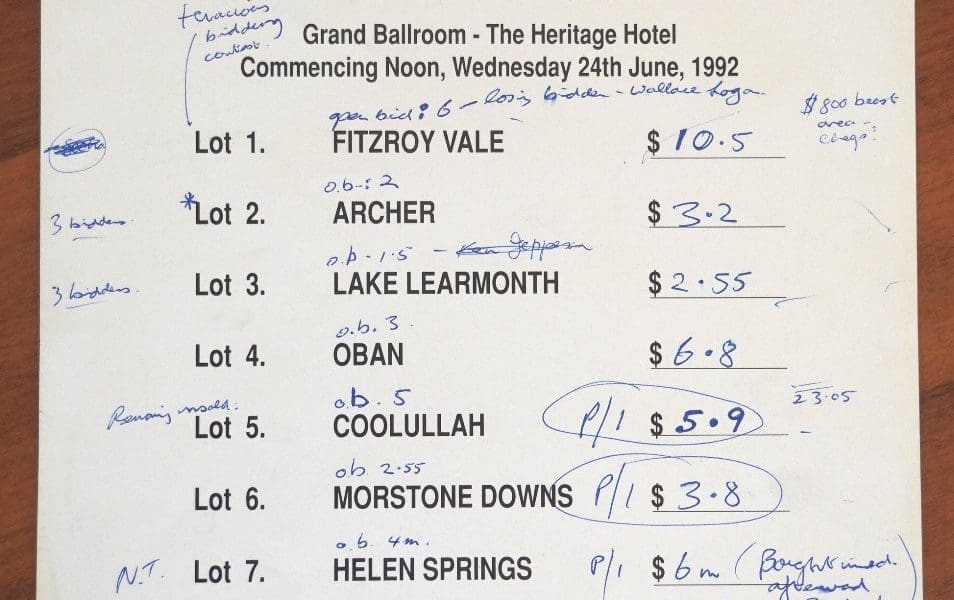 tenacious
bidding
contest.
Grand Ballroom - The Heritage Hotel
Commencing Noon, Wednesday 24th June, 1992
open bid: 6 - losing bidder - Wallace Logan.
$800 beast
area -
Lot 1. FITZROY VALE $ 10.5
o.b-: 2
3 bidders. *Lot 2. ARCHER $ 3.2
o.b - 1.5 -
3 bidders. Lot 3. LAKE LEARMONTH $ 2.55
o.b. 3.
Lot 4. OBAN $ 6.8
o.b. 5
23.05
Remaining unsold:
Lot 5. COOLULLAH P/1 $ 5.9
o.b. 2.55
Lot 6. MORSTONE DOWNS P/1 $ 3.8
o.b. 4m.
N.T. Lot 7. HELEN SPRINGS P/1 $ 6m (Bought immed.
afterward